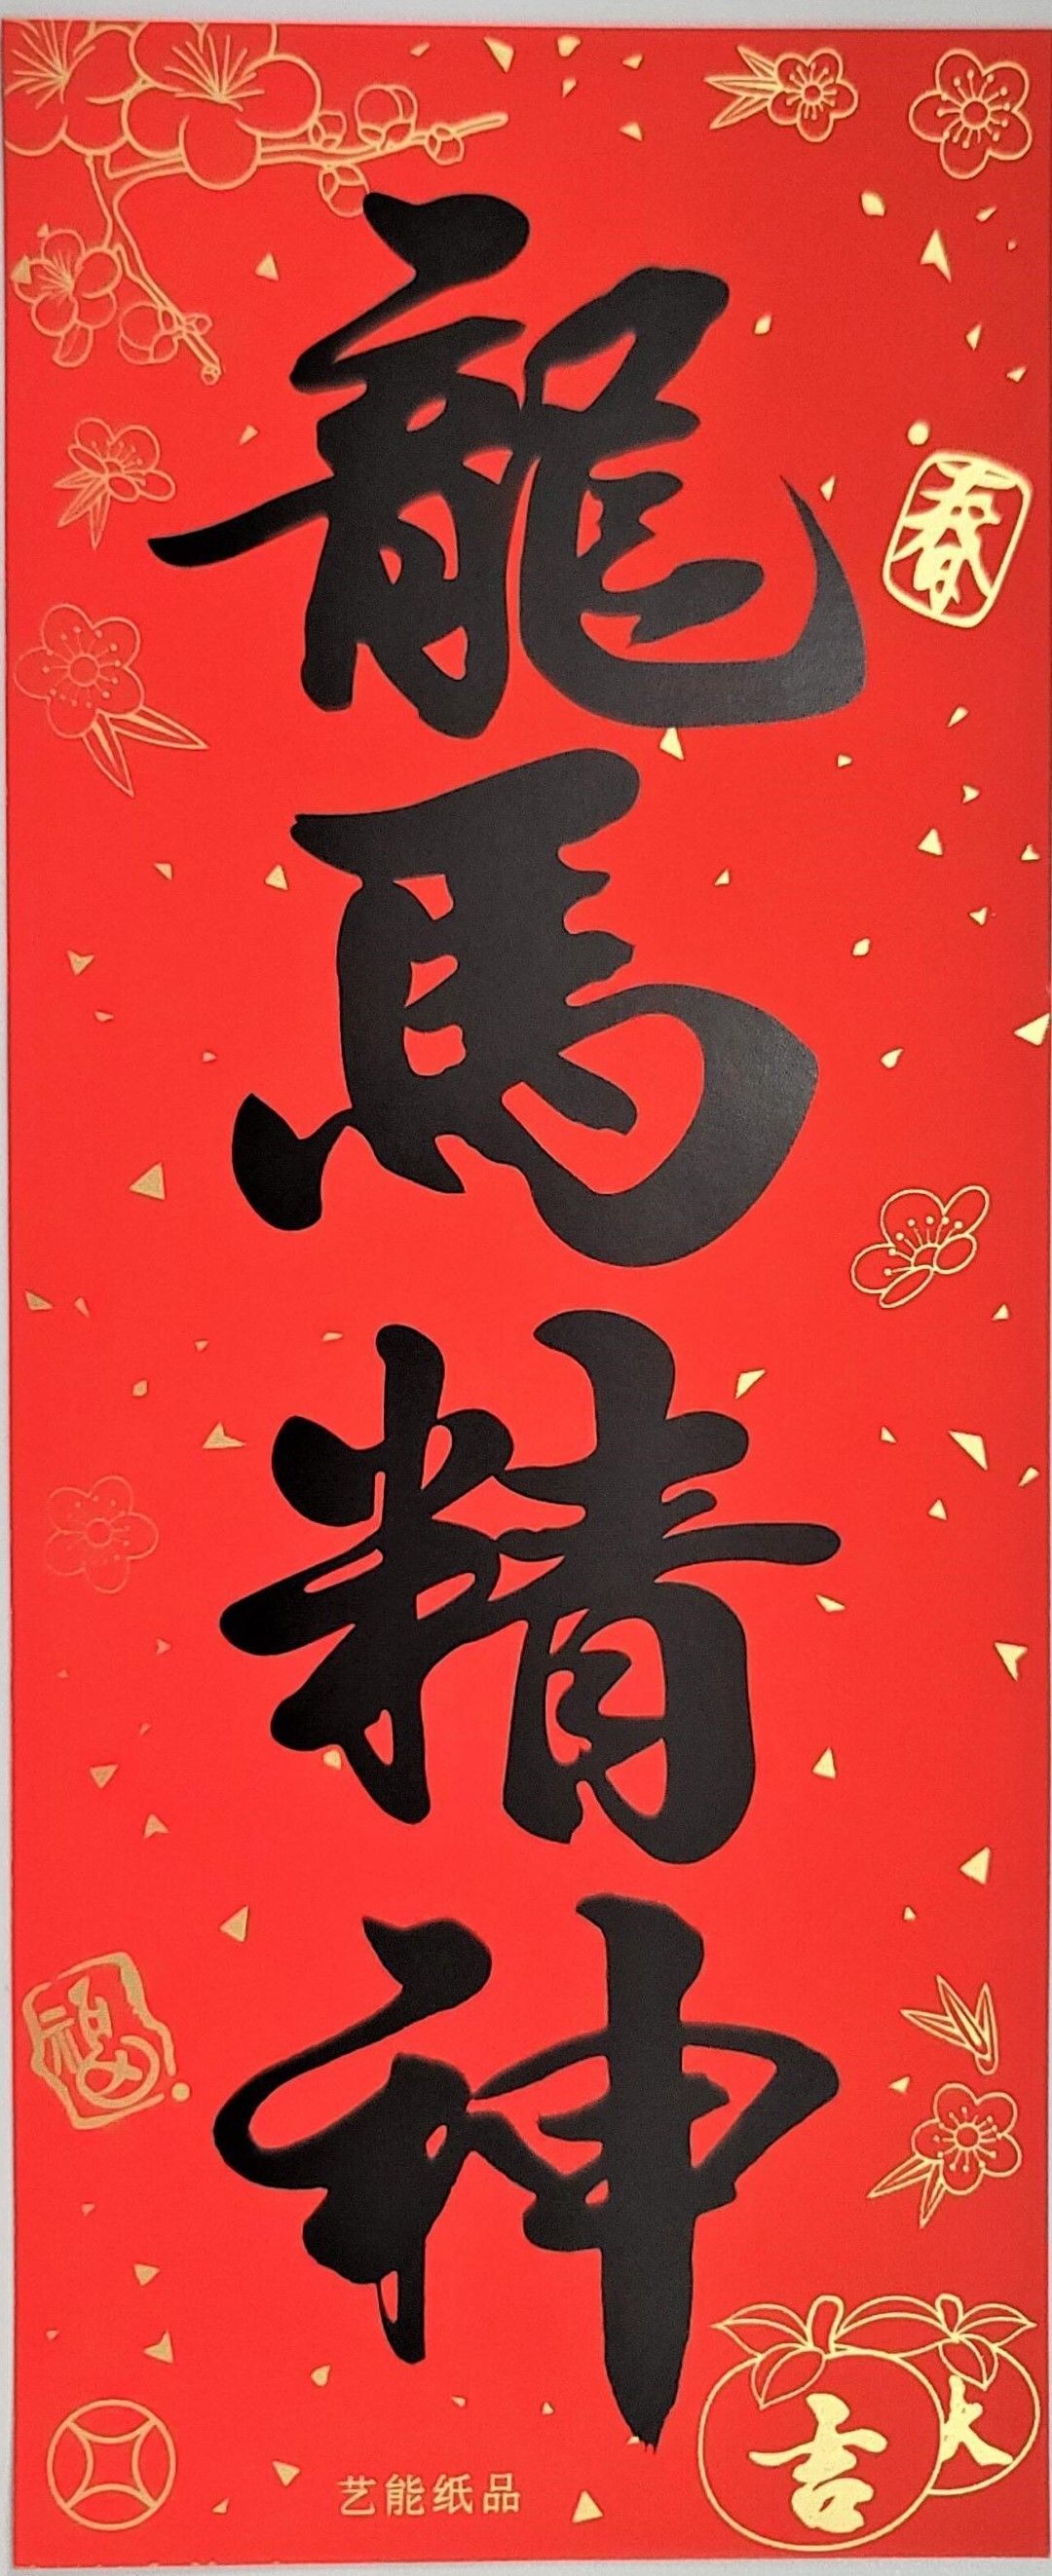 龍馬精神
春
福
大吉
艺能纸品